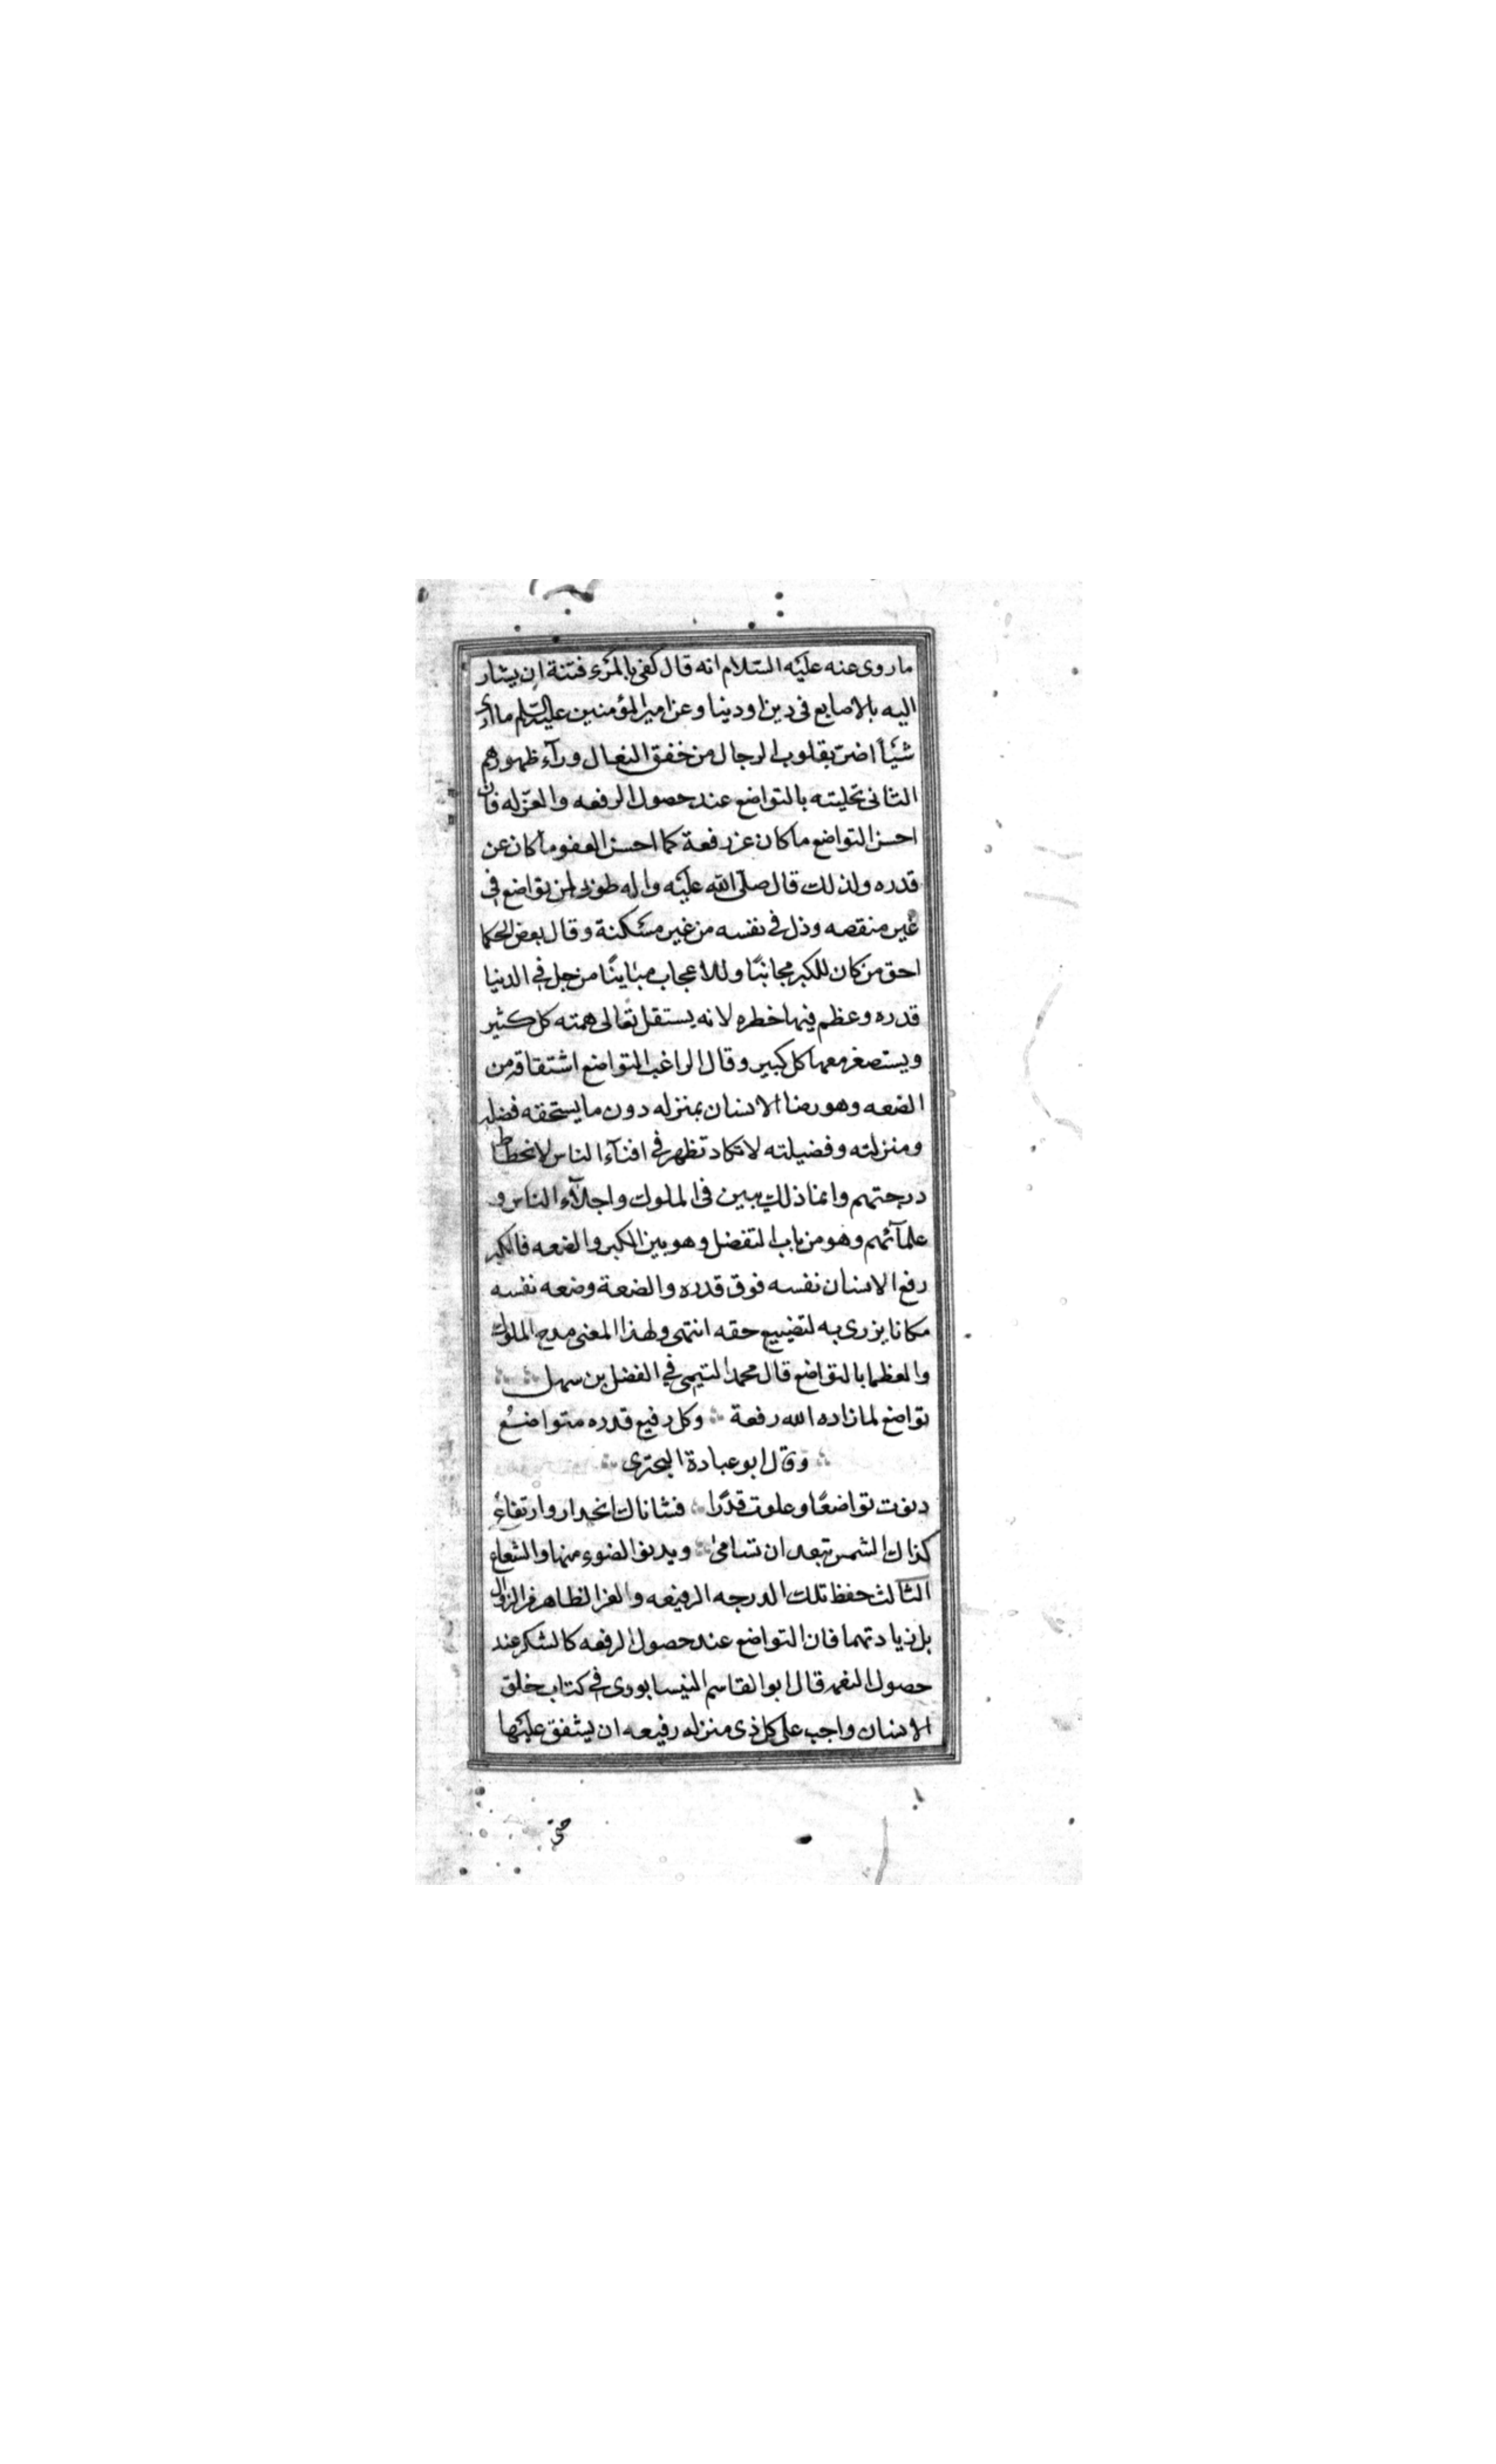 ما روى عنه عليه السّلام انه قال كفى بالمرء فتنة ان يشار
اليه بالاصابع فى دين او دينا و عن امير المؤمنين عليه السّلم ما ارى
شيئاً اضرّ بقلوب الرجال من خفق النعال ورآء ظهورهم
الثانى تحليته بالتواضع عند حصول الرفعه والعزّله فان
احسن التواضع ما كان عن رفعة كما احسن العفو ما كان عن
قدره ولذلك قال صلّى الله عليه واله طوبى لمن تواضع فى
غير منقصه وذل فى نفسه من غير مسكنة وقال بعض الحكما
احق من كان للكبر مجانبًا وللاعجاب مباينًا من جل فى الدنيا
قدره وعظم فيها خطره لانه يستقل تعالى همته كل كثير
ويستصغر معها كل كبير وقال الراغب التواضع اشتقاقه من
الضعه وهو رضا الانسان بمنزله دون ما يستحقه فضله
ومنزلته وفضيلته لا تكاد تظهر فى افنآء الناس لانحطاط
درجتهم وانما ذلك يبين فى الملوك واجلآء الناس و
علمآئهم وهو من باب التفضل وهو بين الكبر والضعه فالكبر
رفع الانسان نفسه فوق قدره والضعة وضعه نفسه
مكانا يزرى به لتضييع حقه انتهى ولهذا المعنى مدح الملوك
والعظما بالتواضع قال محمد التيمى فى الفضل بن سهل
تواضع لما زاده الله رفعة وكل رفيع قدره متواضع
وقال ابو عبادة البحترى
دنوت تواضعًا وعلوت قدرًا فشاناك انحدار وارتفاع
كذاك الشمس تبعد ان تسامى ويدنو الضوء منها والشعاع
الثالث حفظ تلك الدرجه الرفيعه والعز الظاهر من الزوال
بل زيادتهما فان التواضع عند حصول الرفعه كالشكر عند
حصول النعمه قال ابو القاسم النيسابورى فى كتاب خلق
الانسان واجب على كل ذى منزله رفيعه ان يشفق عليها
حتى